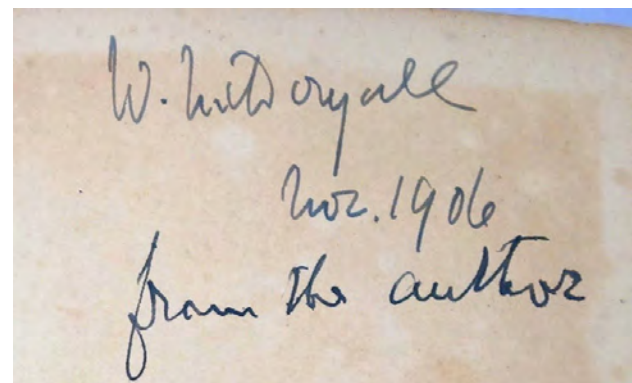 W. McDougall
Nov. 1906
from the author